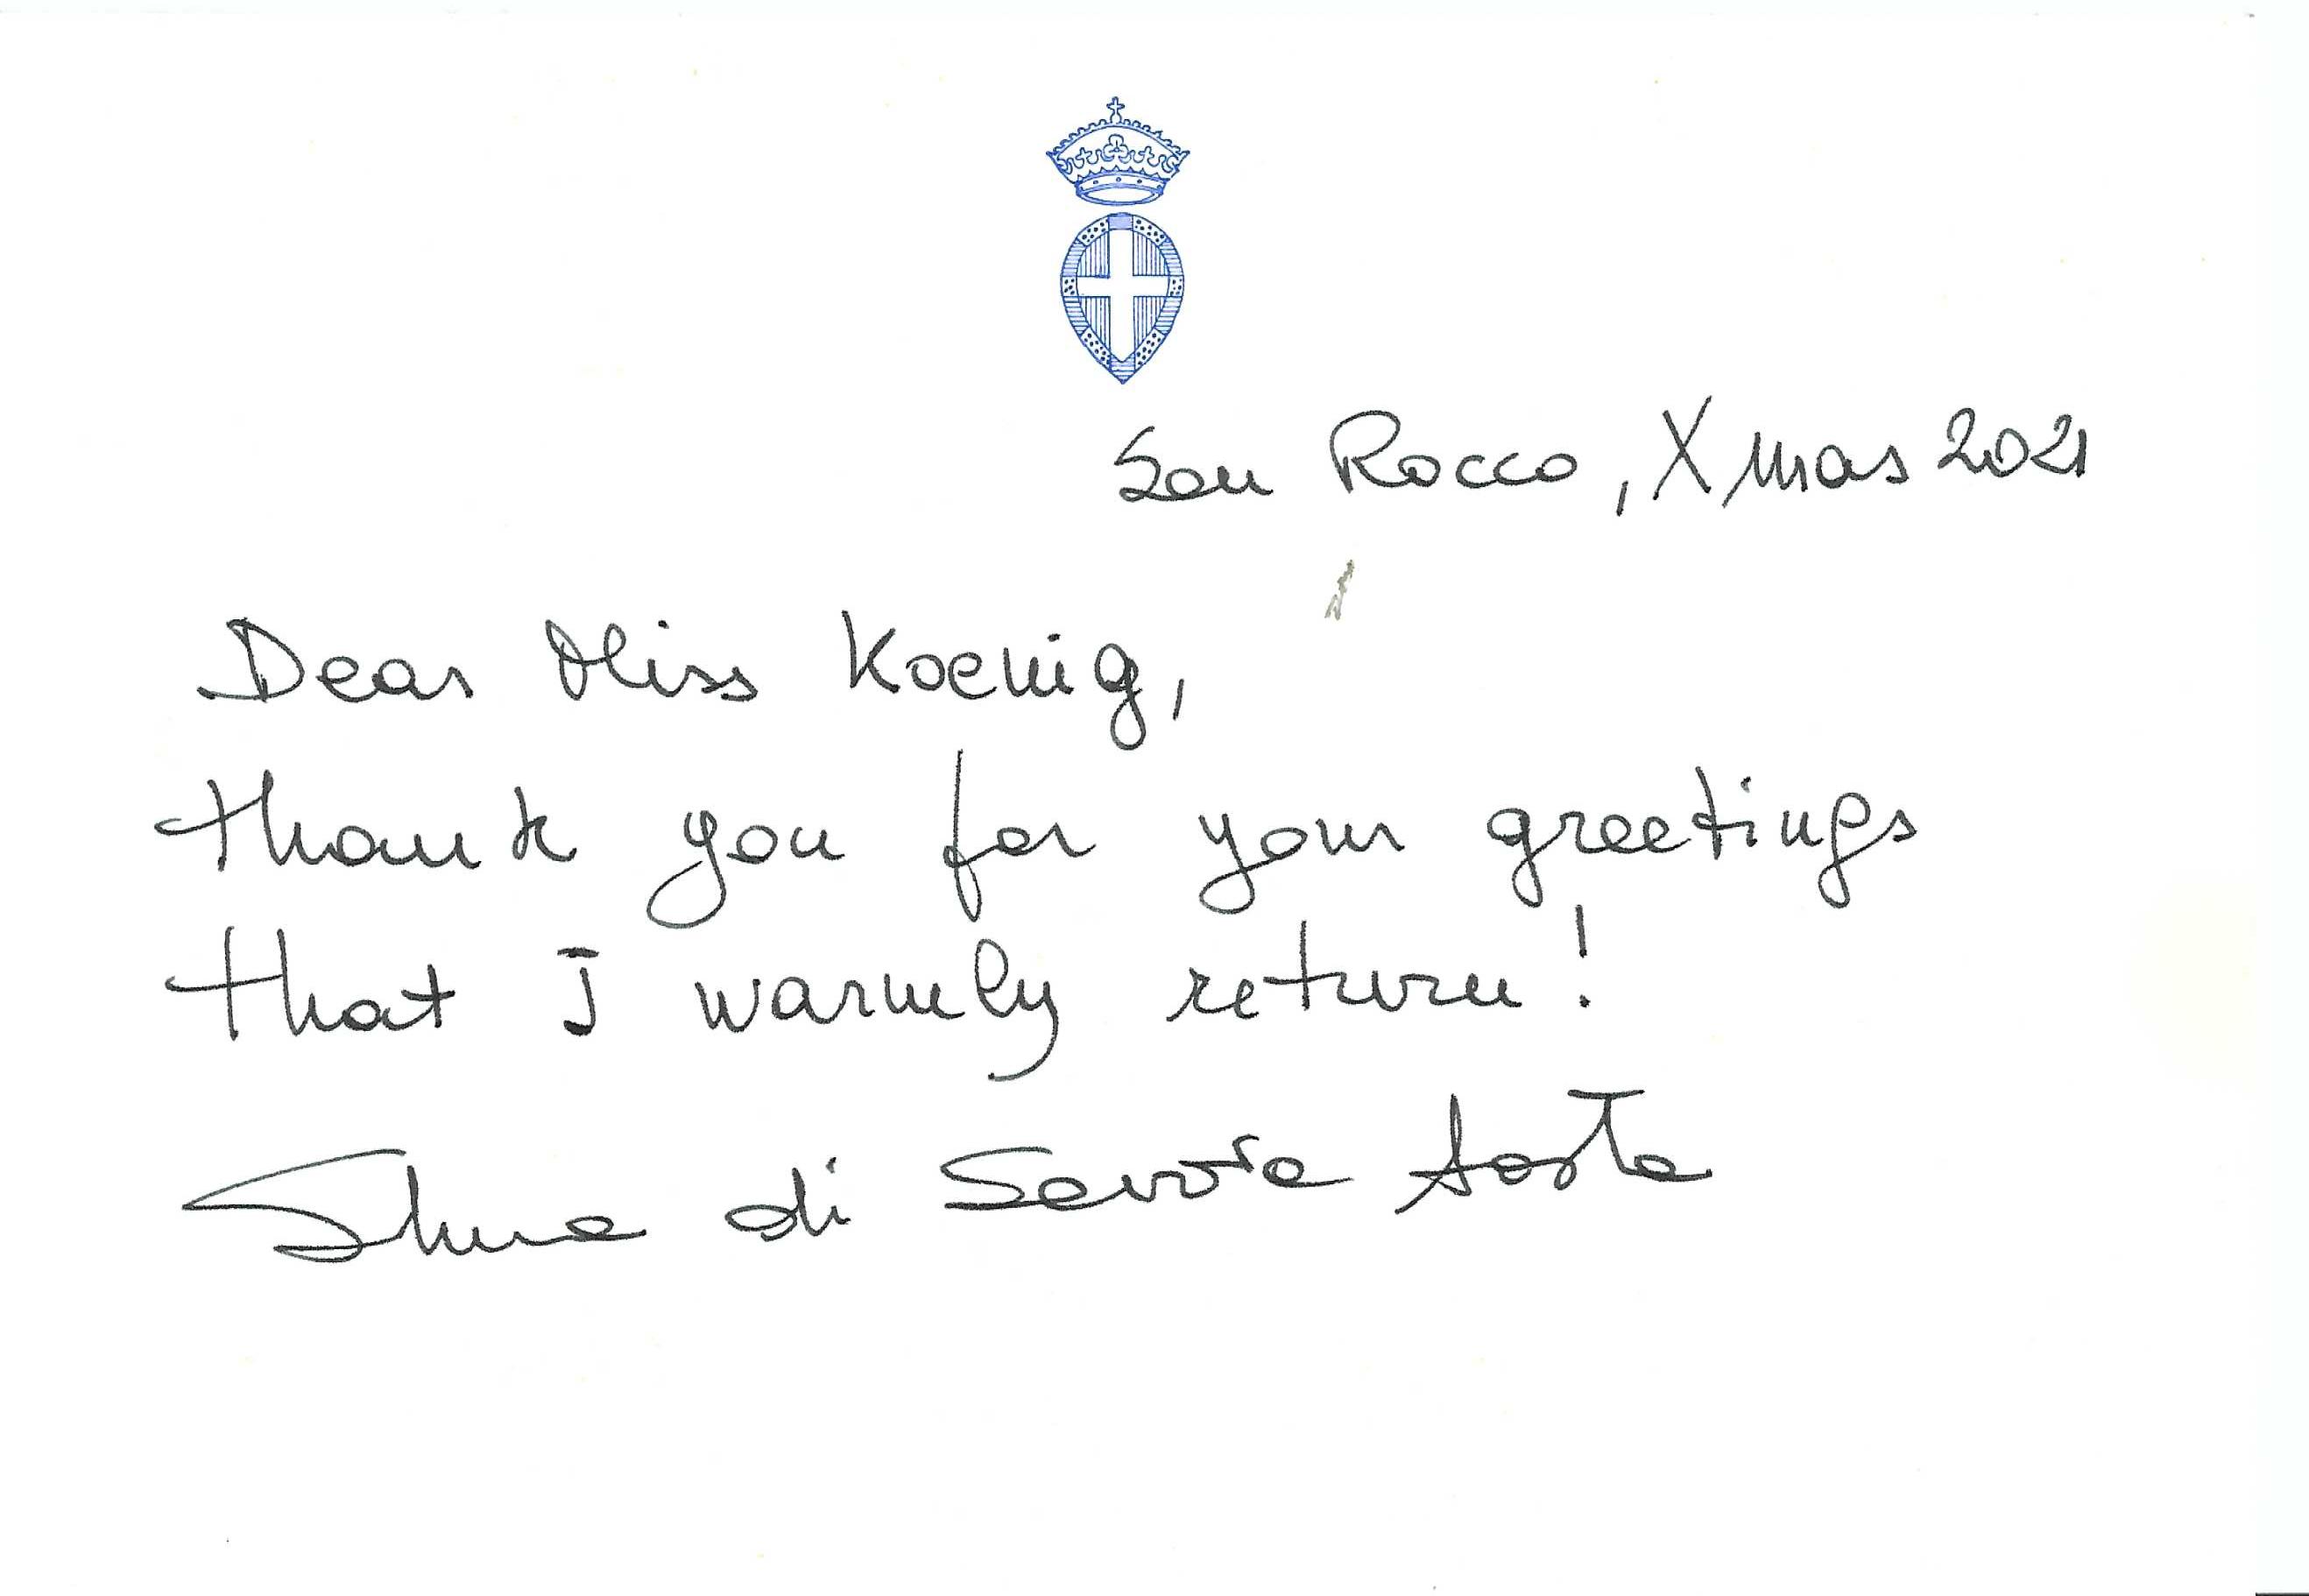 San Rocco, Xmas 2021
Dear Miss Koenig,
thank you for your greetings
that I warmly return!
Silvia di Savoia Aosta